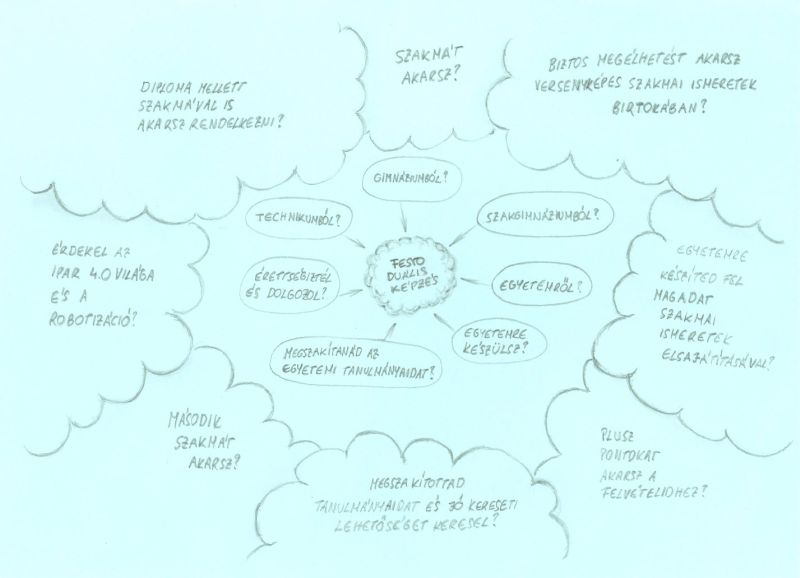 SZAKMÁT
AKARSZ?
DIPLOMA MELLETT
SZAKMÁVAL IS
AKARSZ RENDELKEZNI?
BIZTOS MEGÉLHETÉST AKARSZ
VERSENYKÉPES SZAKMAI ISMERETEK
BIRTOKÁBAN?
GIMNÁZIUMBÓL?
TECHNIKUMBÓL?
SZAKGIMNÁZIUMBÓL?
ÉRDEKEL AZ
IPAR 4.0 VILÁGA
ÉS A
ROBOTIZÁCIÓ?
ÉRETTSÉGIZTÉL
ÉS DOLGOZOL?
FESTO
DUÁLIS
KÉPZÉS
EGYETEMRŐL?
EGYETEMRE
KÉSZÍTED FEL
MAGADAT
SZAKMAI
ISMERETEK
ELSAJÁTÍTÁSÁVAL?
MEGSZAKÍTANÁD AZ
EGYETEMI TANULMÁNYAIDAT?
EGYETEMRE
KÉSZÜLSZ?
MÁSODIK
SZAKMÁT
AKARSZ?
PLUSZ
PONTOKAT
AKARSZ A
FELVÉTELIDHEZ?
MEGSZAKÍTOTTAD
TANULMÁNYAIDAT ÉS JÓ KERESETI
LEHETŐSÉGET KERESEL?